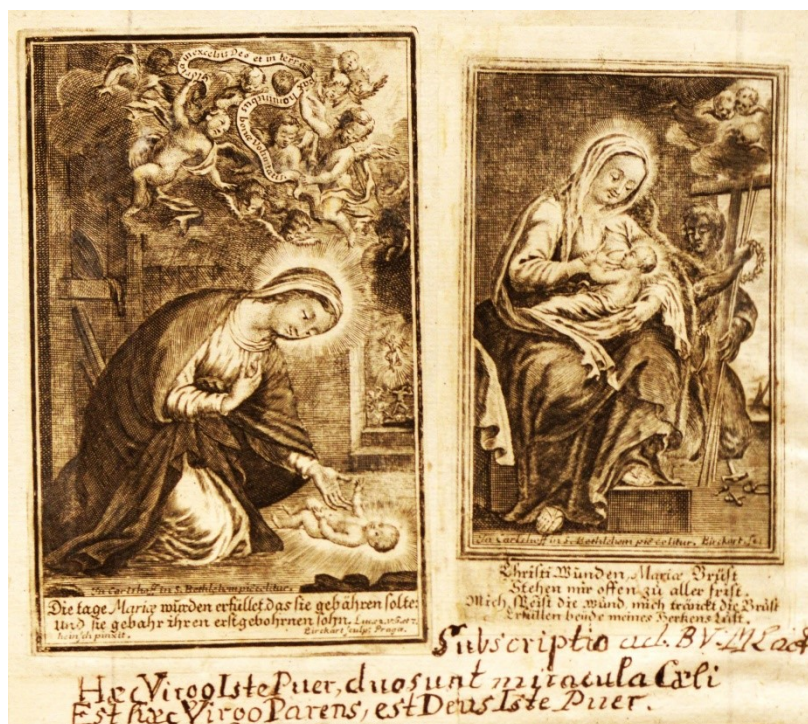 Gloria in excelsis Deo et in terra
Pax hominibus bonæ voluntatis
In Carlshoff in S. Bethlehem pie colitur.
Die tage Mariæ würden erfüllet das sie gebähren solte:
und sie gebahr ihren erstgebohrnen sohn. Lucæ 2. v. 6 et 7
heinsch pinxit. Birckart sculps: Pragæ.
In Carlshoff in S. Bethlehem pie colitur. Birckart Sc:
Christi Wunden Mariæ Brüst
Stehen mir offen zu aller frist.
Mich speist die wund, mich tränckt die Brüst
Erfüllen beyde meines Hertzens Lust.
Subscriptio ad. B V M Lact
Hæc Virgo Iste Puer, duo sunt miracula Cæli
Est hæc Virgo Parens, est Deus Iste Puer.